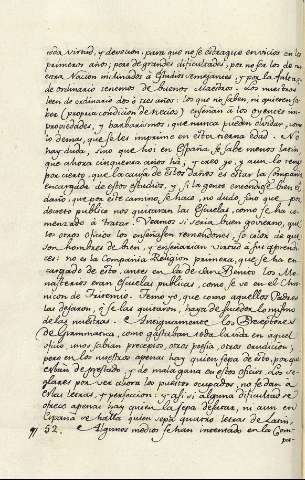 toda virtud, y devocion, para que no se estrague en vicios en los
primeros años; pero de grandes dificultades, por no ser los de nu
estra Nacion inclinados à estudios semejantes, y por la falta, q
de ordinario tenemos de buenos Maestros. Los nuestros
leen de ordinario dos ò tres años: los que no saben, ni quieren sa
ber (propria condicion de necio) enseñan à los oyentes im-
propiedades, y barbarismos, que nunca pueden olvidar,
demas, que se les imprime en esta tierna edad. No
hay duda, sino que hoi en España se sabe menos latin,
que ahora cinquenta años hà, y creo yo, y aun lo tengo
por cierto, que la causa de estos daños es estar la Compañia
encargada de estos estudios, y si la gente entendiese bien el
daño, que por este camino se hace, no dudo, sino que por
decreto publico nos quitaran las Escuelas, como se ha co-
menzado à tratar. Veamos si seria buen govierno, que
los otros oficios los enseñasen remendones, so color de que
son hombres de bien, y enseñarian virtud à sus aprendi
ces: no es la Compañia Religion primera, que se ha en
cargado de esto, antes en la de San Benito los Mo-
nasterios eran Escuelas publicas, como se ve en el Chro
nicon de Tritemio. Temo yo, que como aquellos Padres
las dejaron, ò se las quitaron, haya de suceder lo mismo
de las nuestras. Antiguamente los Preceptores
de Grammatica, como gastaban toda la vida en aquel
oficio, unos sabian preceptos, otros poesia, otros erudicion;
pero en los nuestros apenas hay quien sepa de esto, porque
estan de prestado, y de mala gana en estos oficios. Los se-
glares por ver ahora los puestos ocupados, no se dan à
estas letras, y perfeccion: y asi si alguna dificultad se
ofrece apenas hay quien la sepa desatar, ni aun en
España se halla quien sepa quatro letras de Latin.
52. Algunos medios se han intentado en la Com-
pa-